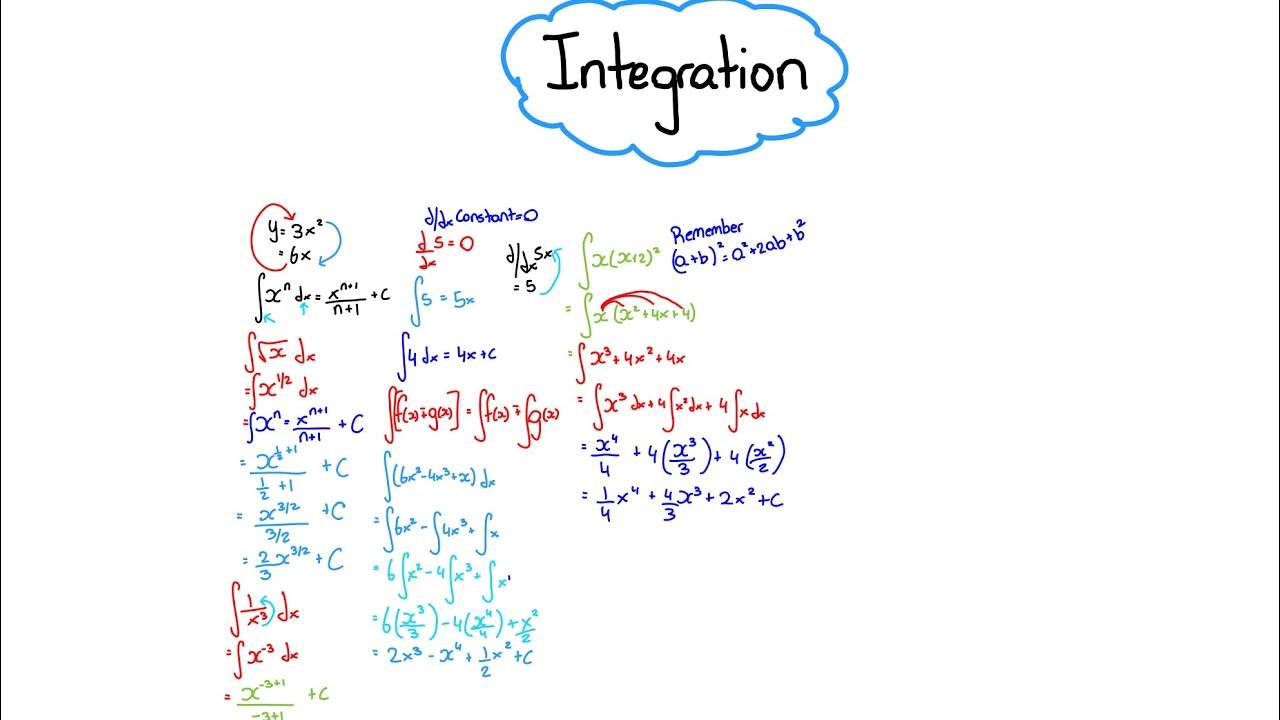 Integration
y = 3x²
= 6x
∫xⁿ dx = xⁿ⁺¹/n+1 + C
∫√x dx
= ∫x^1/2 dx
= ∫xⁿ = xⁿ⁺¹/n+1 + C
= x^(1/2+1)/(1/2+1) + C
= x^3/2/(3/2) + C
= 2/3 x^3/2 + C
∫1/x³ dx
= ∫x⁻³ dx
= x^-3+1/-3+1 + C
d/dx constant = 0
d/dx 5 = 0
d/dx 5x
= 5
∫5 = 5x
∫4 dx = 4x + C
∫[f(x) ∓ g(x)] = ∫f(x) ∓ ∫g(x)
∫(6x² - 4x³ + x) dx
= ∫6x² - ∫4x³ + ∫x
= 6∫x² - 4∫x³ + ∫x
= 6(x³/3) - 4(x⁴/4) + x²/2
= 2x³ - x⁴ + 1/2 x² + C
∫x(x+2)²
Remember
(a+b)² = a² + 2ab + b²
= ∫x(x² + 4x + 4)
= ∫x³ + 4x² + 4x
= ∫x³ dx + 4∫x² dx + 4∫x dx
= x⁴/4 + 4(x³/3) + 4(x²/2)
= 1/4 x⁴ + 4/3 x³ + 2x² + C